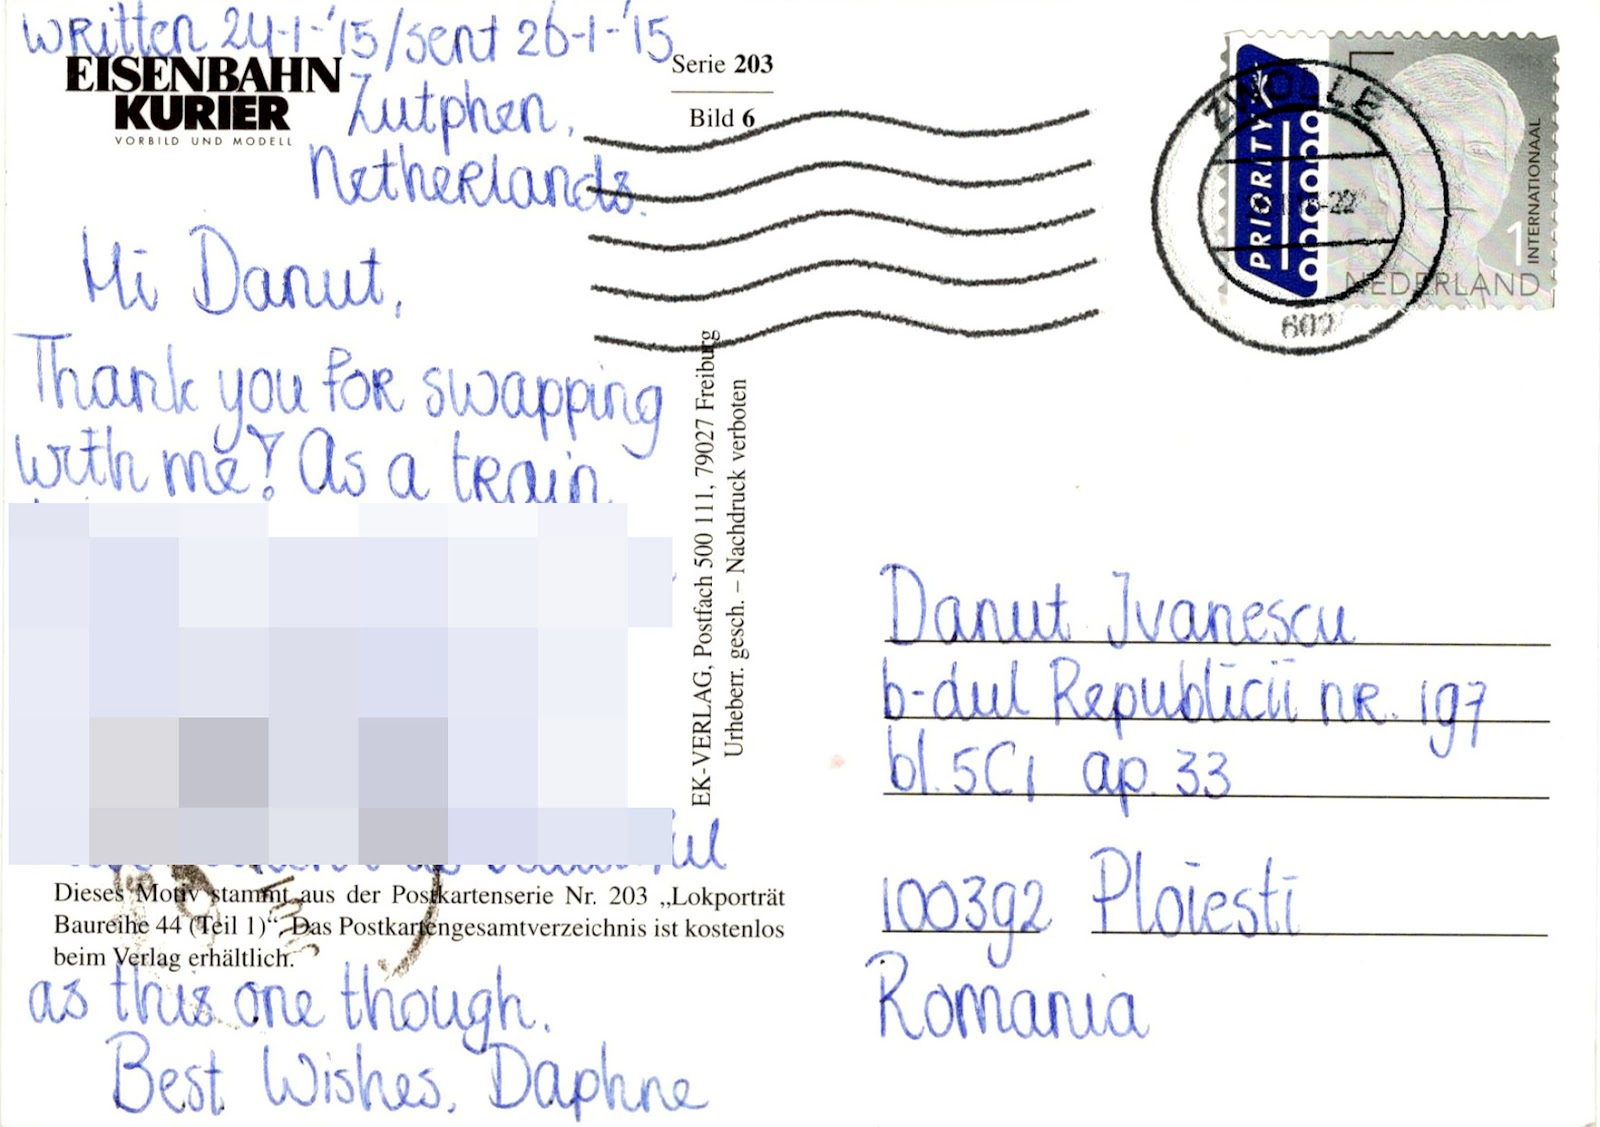 Written 24-1-'15/sent 26-1-'15
EISENBAHN
KURIER
VORBILD UND MODELL
Zutphen,
Netherlands.
Serie 203
Bild 6
Hi Danut,
Thank you for swapping
with me! As a train
as this one though.
Best Wishes, Daphne
Dieses Motiv stammt aus der Postkartenserie Nr. 203 „Lokporträt
Baureihe 44 (Teil 1)“. Das Postkartengesamtverzeichnis ist kostenlos
beim Verlag erhältlich.
EK-VERLAG, Postfach 500 111, 79027 Freiburg
Urheberr. gesch. – Nachdruck verboten
ZWOLLE
PRIORITY
1 INTERNATIONAAL
NEDERLAND
Danut Ivanescu
b-dul Republicii nr. 197
bl. 5C1 ap. 33
100392 Ploiesti
Romania